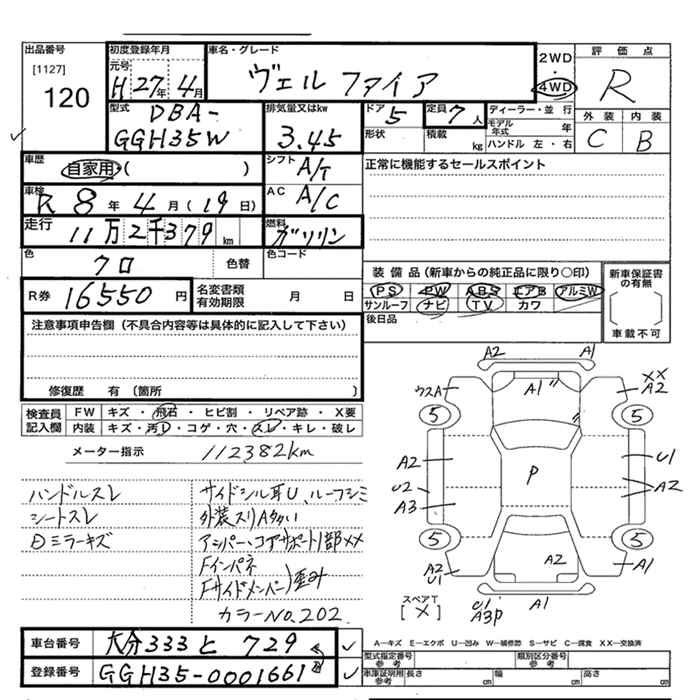 出品番号
[1127]
120
初度登録年月
元号
H 27年 4月
車名・グレード
ヴェルファイア
2WD
・
4WD
評価点
R
外装 内装
C B
型式
DBA-
GGH35W
排気量又はkw
3.45
ドア
5
定員
7人
形状
積載
kg
ディーラー・並行
モデル年式 年
ハンドル 左・右
車歴
自家用・( )
シフト
A/T
正常に機能するセールスポイント
車検
R 8年 4月(19日)
AC
A/C
走行
11万2千379km
燃料
ガソリン
色
クロ
色替
色コード
R券 16550円
名変書類
有効期限
月 日
装備品(新車からの純正品に限り〇印)
PS PW ABS エアB アルミW
サンルーフ ナビ TV カワ
後日品
新車保証書
の有無
車載不可
注意事項申告欄(不具合内容等は具体的に記入して下さい)
修復歴 有(箇所 )
検査員
記入欄
FW キズ・飛石・ヒビ割・リペア跡・X要
内装 キズ・汚レ・コゲ・穴・スレ・キレ・破レ
メーター指示 112382km
ハンドルスレ
シートスレ
Dミラーキズ
サイドシル耳U、ルーフシミ
外装スリA多い
アンパー・コアサポート1部XX
Fインパネ
Fサイドメンバー)歪み
カラーNo.202
A2 A1
ウスA A1" XX
A2
5 5
A2 U1
U2 P A2
A3
5 5
A2
U1 A2 A1
スペアT
[X]
U1
A3P A1
車台番号 大分333と 729
登録番号 GGH35-0001661
A―キズ E―エクボ U―凹み W―補修跡 S―サビ C―腐食 XX―交換済
型式指定番号
参考
類別区分番号
参考
車庫証明用
参考
長さ cm 幅 cm 高さ cm